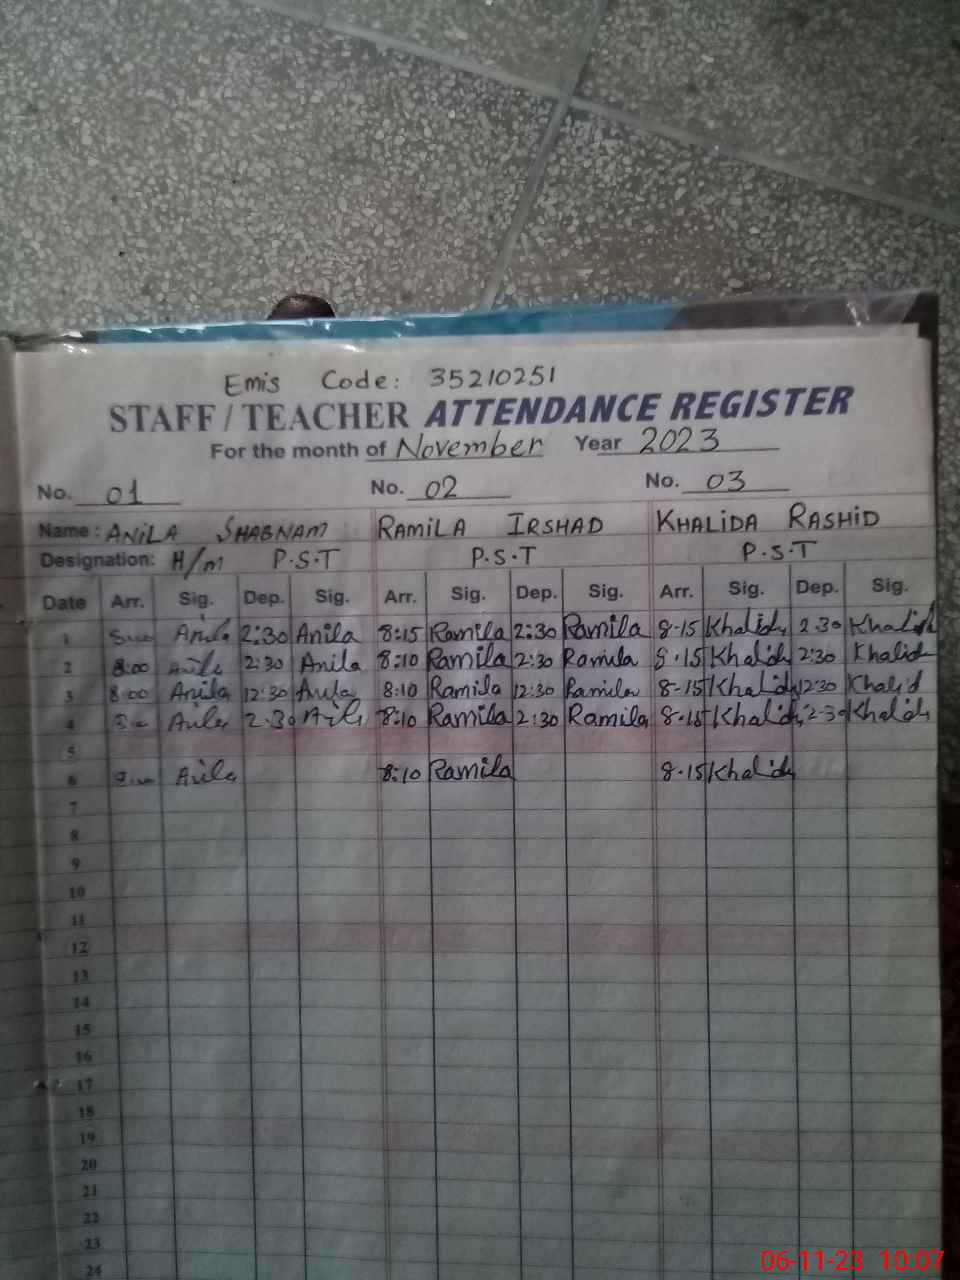 Emis Code: 35210251
STAFF / TEACHER ATTENDANCE REGISTER
For the month of November Year 2023
No. 01 No. 02 No. 03
Name: ANILA SHABNAM RAMILA IRSHAD KHALIDA RASHID
Designation: H/m P.S.T P.S.T P.S.T
Date Arr. Sig. Dep. Sig. Arr. Sig. Dep. Sig. Arr. Sig. Dep. Sig.
1 Anila 2:30 Anila 8:15 Ramila 2:30 Ramila 8-15 Khalida 2-30 Khalida
2 8:00 Anila 2:30 Anila 8:10 Ramila 2:30 Ramila 8.15 Khalida 2:30 Khalida
3 8:00 Anila 12:30 Anila 8:10 Ramila 12:30 Ramila 8-15 Khalida 12:30 Khalid
4 Anila 2.30 Anila 8:10 Ramila 2:30 Ramila 8.15 Khalida 2-30 Khalida
5
6 Anila 8:10 Ramila 8.15 Khalida
7
8
9
10
11
12
13
14
15
16
17
18
19
20
21
22
23
24
06-11-23 10:07